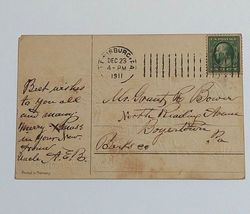 DEC 23
4-PM
1911
Best wishes
to you all
and many
Merry Xmas
in your New
Home
Uncle A.E.B.
Mr. Grant R Bower
North Reading Avenue
Boyertown
Pa
Berks co
Printed in Germany